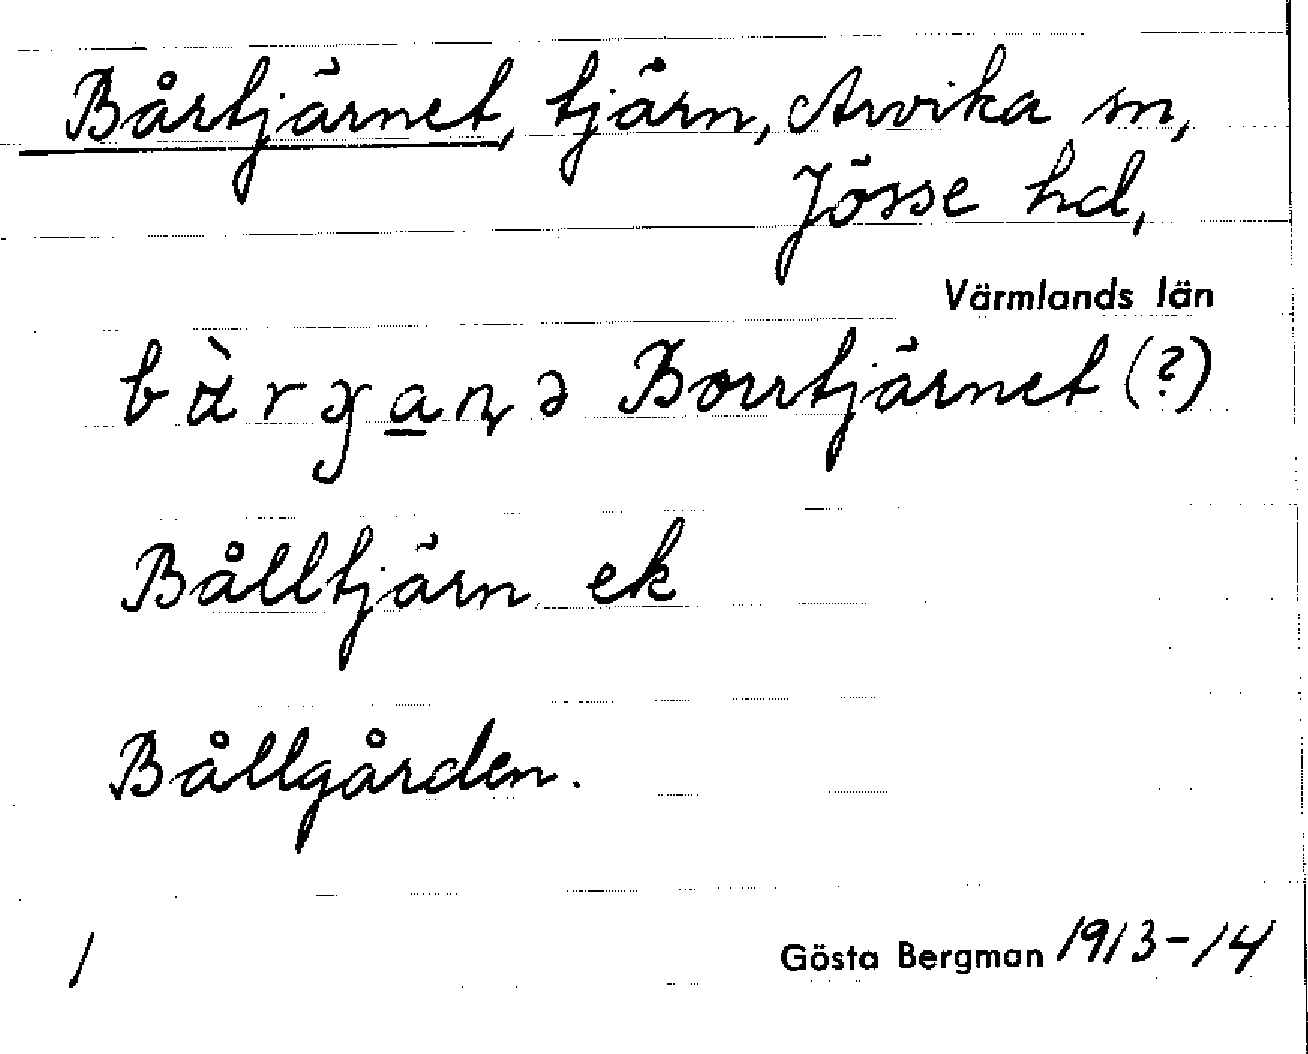 Bårtjärnet, tjärn, Arvika sn,
Jösse hd,
Värmlands län
Borrtjärnet (?)
Bålltjärn ek
Bållgården.
1
Gösta Bergman 1913-14